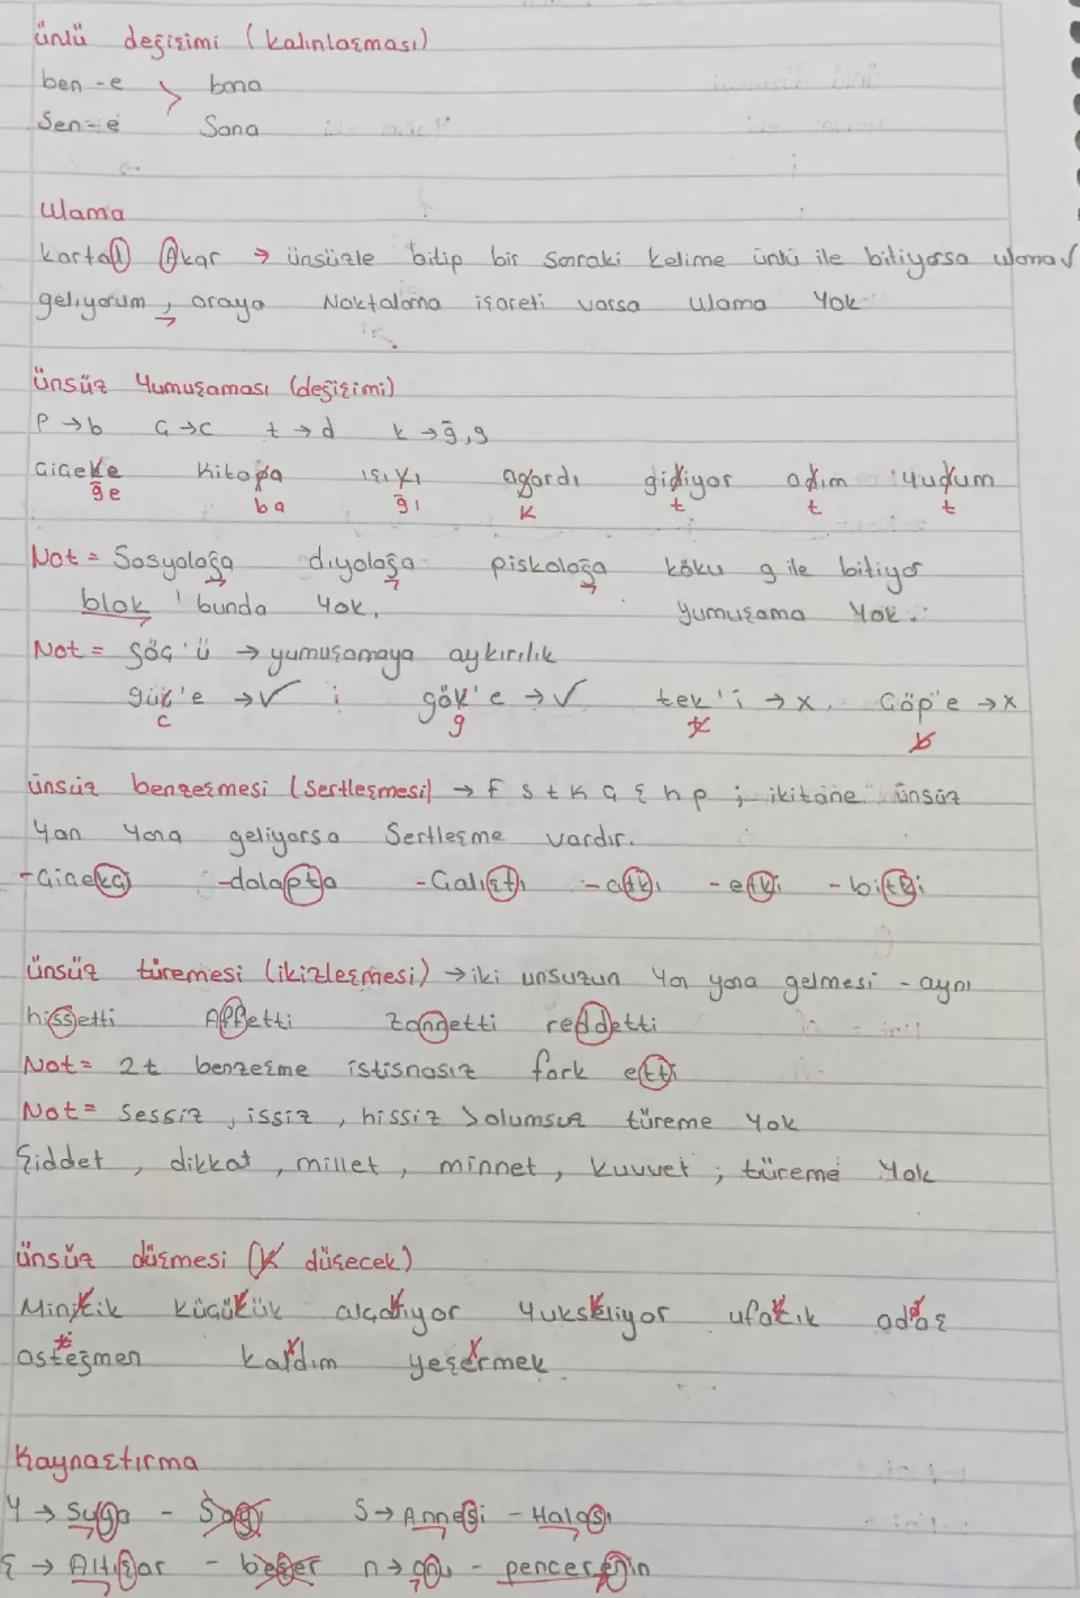 ünlü değişimi (kalınlaşması)
ben -e > bana
Sen -e Sana
Ulama
kartal Akar → ünsüzle bitip bir sonraki kelime ünlü ile bitiyorsa ulama √
geliyorum, oraya Noktalama işareti varsa ulama Yok
ünsüz Yumuşaması (değişimi)
P → b ç → c t → d k → ğ, g
Çiçeke Kitapa ışıkı agardı gidiyor adım yudum
ğe ba ğı k t t t
Not = Sosyoloğa diyoloğa piskoloğa kökü g ile bitiyor
blok bunda Yok. Yumuşama Yok.
Not = göç'ü → yumuşamaya aykırılık
güç'e → √ gök'e → √ tek'i → x Çöp'e → x
c g k b
ünsüz benzeşmesi (Sertleşmesi) → f s t k ç ş h p ; iki tane ünsüz
Yan Yana geliyorsa Sertleşme vardır.
- Çiçekçi - dolapta - Çalıştı - atkı - etki - bitki
ünsüz türemesi (ikizleşmesi) → iki unsuzun Yan yana gelmesi - aynı
hissetti Affetti zannetti reddetti
Not = 2t benzeşme istisnasız fark etti
Not = Sessiz, issiz, hissiz > olumsuz türeme Yok
Şiddet, dikkat, millet, minnet, kuvvet ; türeme Yok
ünsüz düşmesi (K düşecek)
Minikcik küçükük alçakıyor Yukskeliyor ufakcık adaş
asteğmen kaldım yeşermek
Kaynaştırma
Y → Suya - Sayı S → Annesi - Halası
Ş → Altışar - beşer n → onu - pencerenin